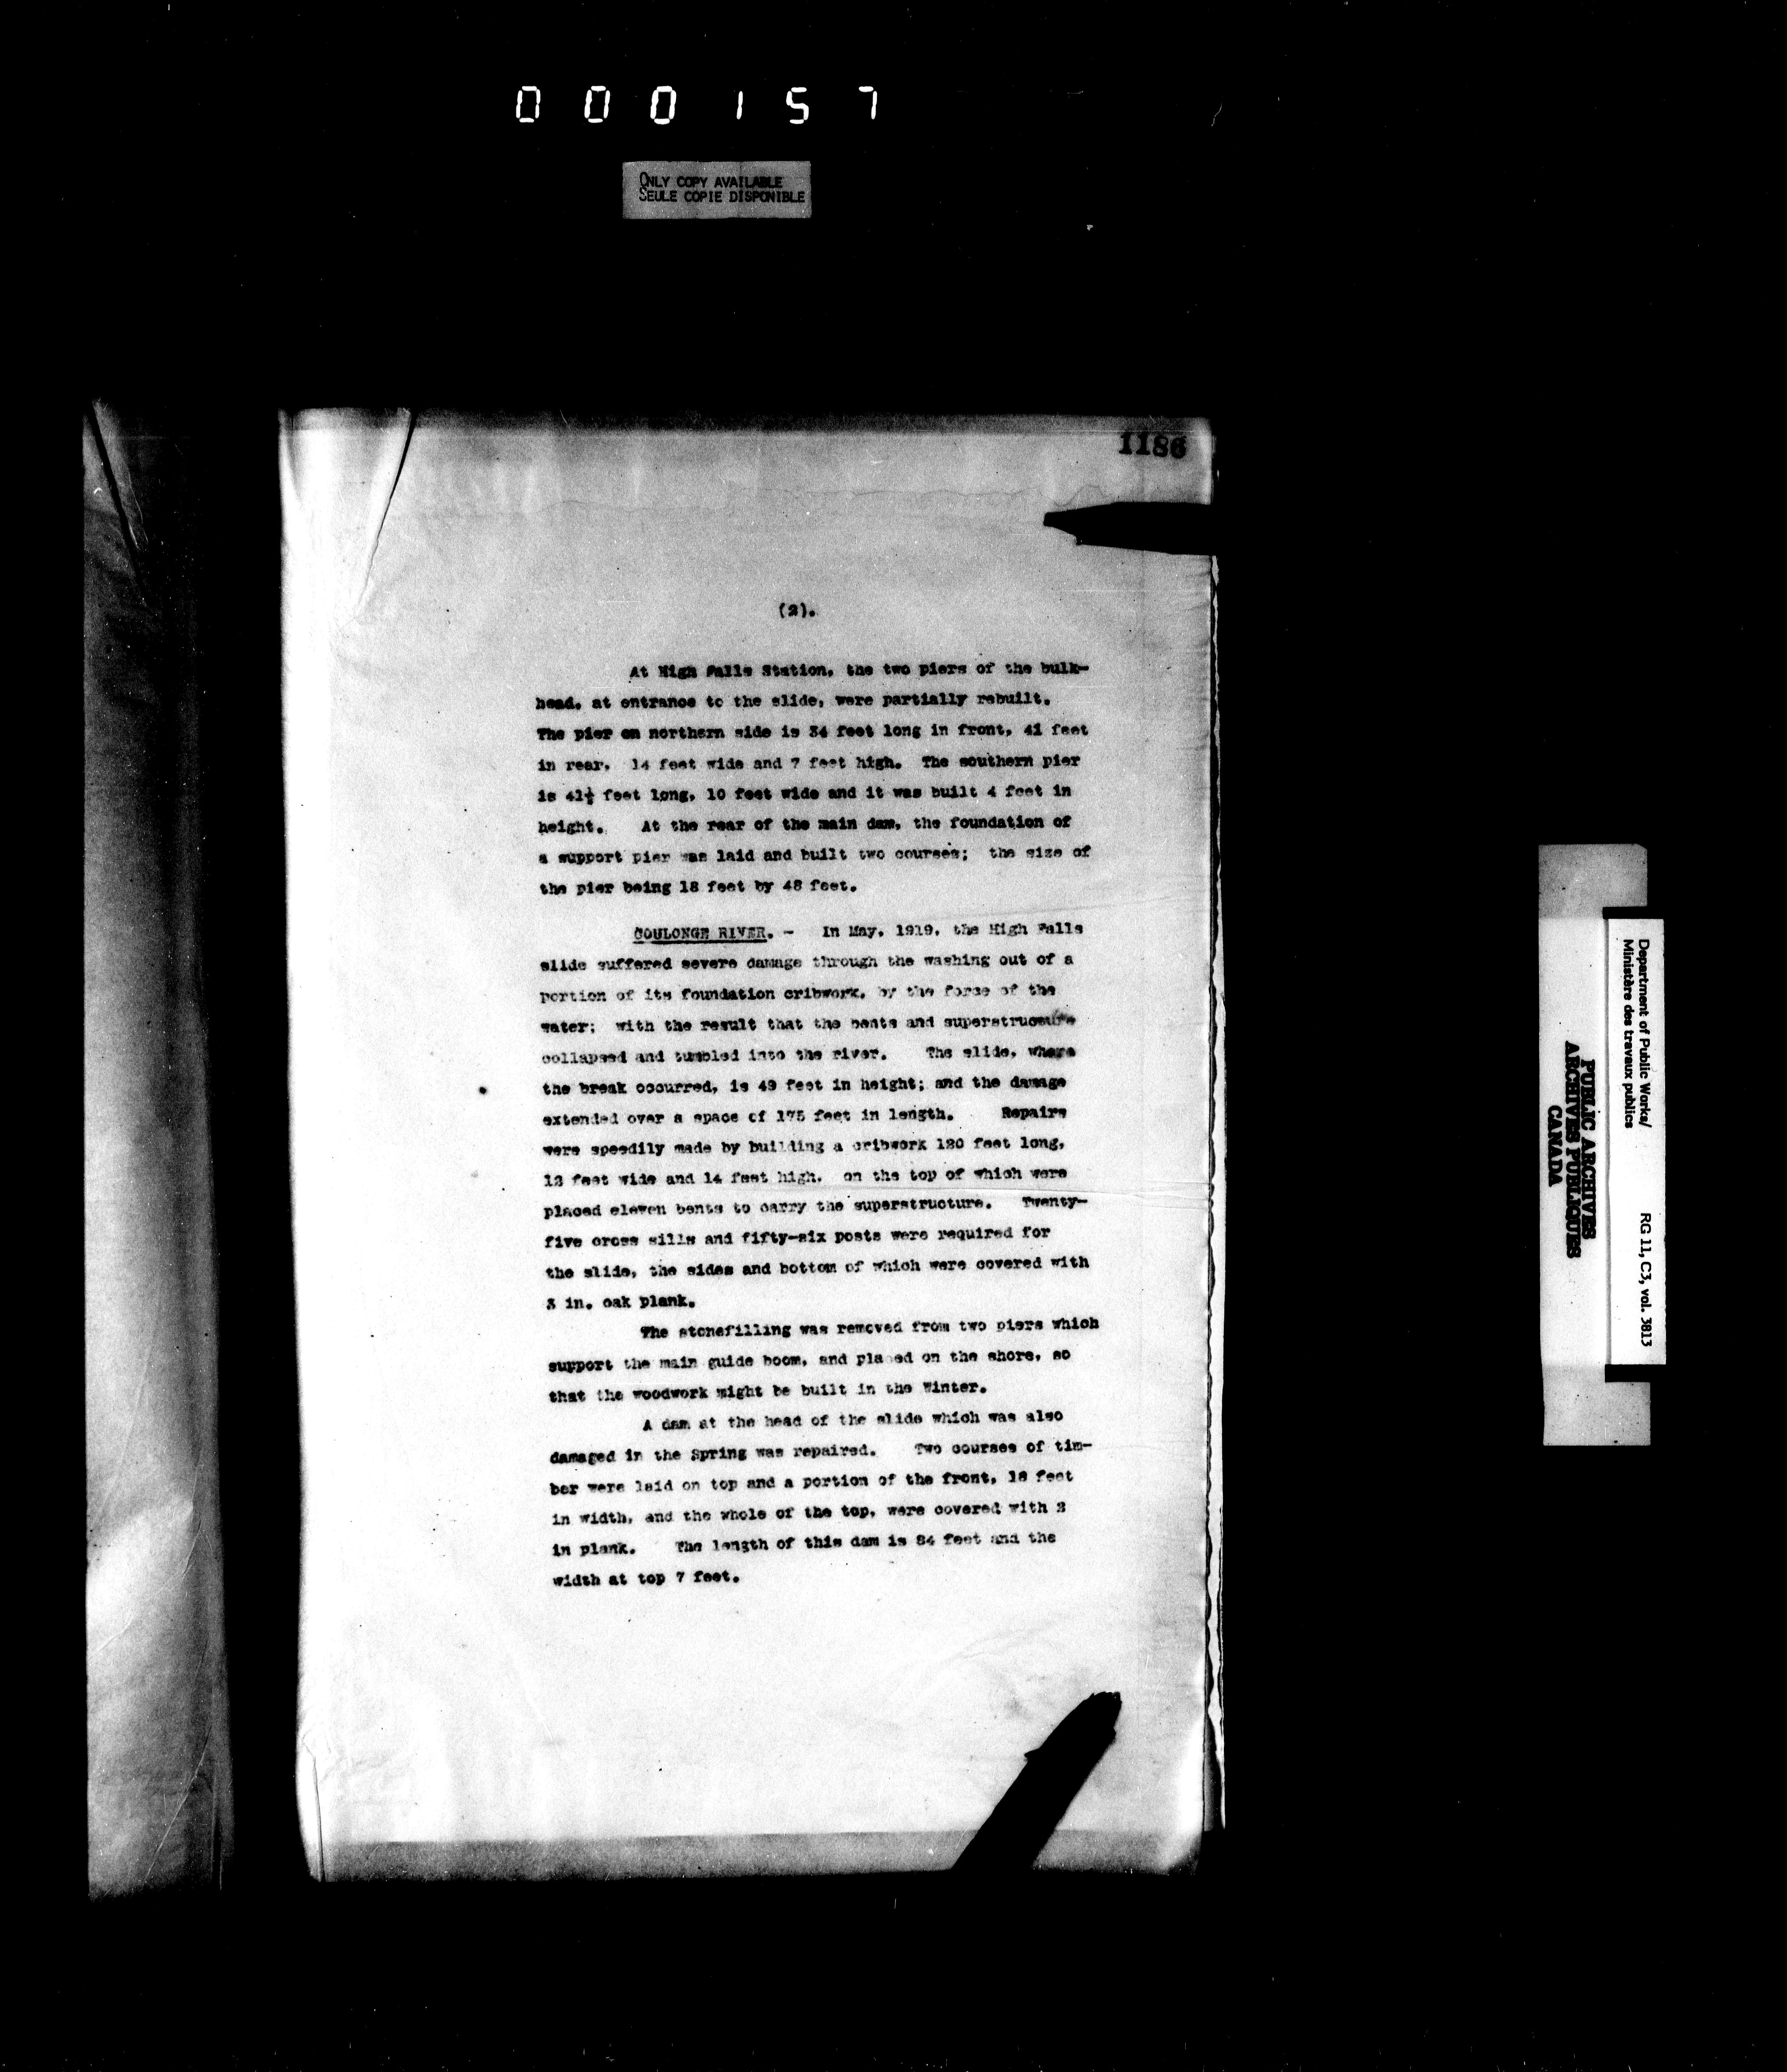 000157
ONLY COPY AVAILABLE
SEULE COPIE DISPONIBLE
1186
(2).
At High Falls Station, the two piers of the bulk-
head, at entrance to the slide, were partially rebuilt.
The pier on northern side is 34 feet long in front, 41 feet
in rear, 14 feet wide and 7 feet high. The southern pier
is 41½ feet long, 10 feet wide and it was built 4 feet in
height. At the rear of the main dam, the foundation of
a support pier was laid and built two courses; the size of
the pier being 18 feet by 48 feet.
COULONGE RIVER. - In May, 1919, the High Falls
slide suffered severe damage through the washing out of a
portion of its foundation cribwork, by the force of the
water; with the result that the bents and superstructure
collapsed and tumbled into the river. The slide, where
the break occurred, is 49 feet in height; and the damage
extended over a space of 175 feet in length. Repairs
were speedily made by building a cribwork 120 feet long,
12 feet wide and 14 feet high, on the top of which were
placed eleven bents to carry the superstructure. Twenty-
five cross sills and fifty-six posts were required for
the slide, the sides and bottom of which were covered with
3 in. oak plank.
The stonefilling was removed from two piers which
support the main guide boom, and placed on the shore, so
that the woodwork might be built in the Winter.
A dam at the head of the slide which was also
damaged in the Spring was repaired. Two courses of tim-
ber were laid on top and a portion of the front, 18 feet
in width, and the whole of the top, were covered with
in plank. The length of this dam is 84 feet and the
width at top 7 feet.
Department of Public Works/
Ministère des travaux publics
RG 11, C3, vol. 3813
PUBLIC ARCHIVES
ARCHIVES PUBLIQUES
CANADA